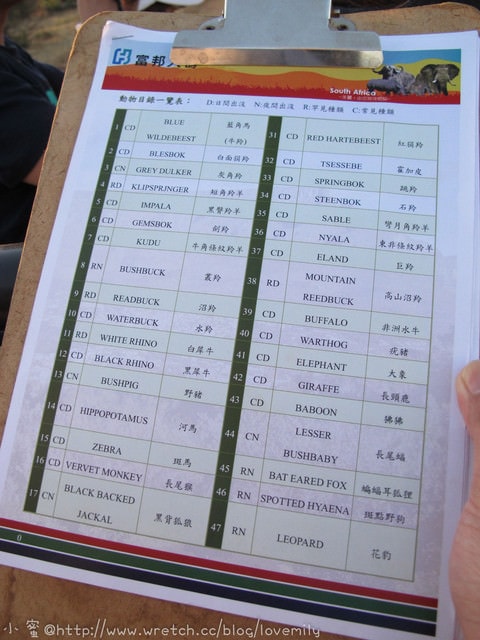 富邦人壽
South Africa
動物目錄一覽表： D:日間出沒 N:夜間出沒 R:罕見種類 C:常見種類
1 CD BLUE WILDEBEEST 藍角馬(牛羚)
2 CD BLESBOK 白面羚羚
3 CN GREY DULKER 灰角羚
4 RD KLIPSPRINGER 短角羚羊
5 CD IMPALA 黑臀羚羊
6 CD GEMSBOK 劍羚
7 CD KUDU 牛角條紋羚羊
8 RN BUSHBUCK 叢羚
9 RD READBUCK 沼羚
10 CD WATERBUCK 水羚
11 RD WHITE RHINO 白犀牛
12 CD BLACK RHINO 黑犀牛
13 CN BUSHPIG 野豬
14 CD HIPPOPOTAMUS 河馬
15 CD ZEBRA 斑馬
16 CD VERVET MONKEY 長尾猴
17 CN BLACK BACKED JACKAL 黑背狐狼
31 CD RED HARTEBEEST 紅狷羚
32 CD TSESSEBE 霍加皮
33 CD SPRINGBOK 跳羚
34 CD STEENBOK 石羚
35 CD SABLE 彎月角羚羊
36 CD NYALA 東非條紋羚羊
37 CD ELAND 巨羚
38 RD MOUNTAIN REEDBUCK 高山沼羚
39 CD BUFFALO 非洲水牛
40 CD WARTHOG 疣豬
41 CD ELEPHANT 大象
42 CD GIRAFFE 長頸鹿
43 CD BABOON 狒狒
44 CN LESSER BUSHBABY 長尾蝠
45 RN BAT EARED FOX 蝙蝠耳狐狸
46 RN SPOTTED HYAENA 斑點野狗
47 RN LEOPARD 花豹
0
小蜜@http://www.wretch.cc/blog/lovemily